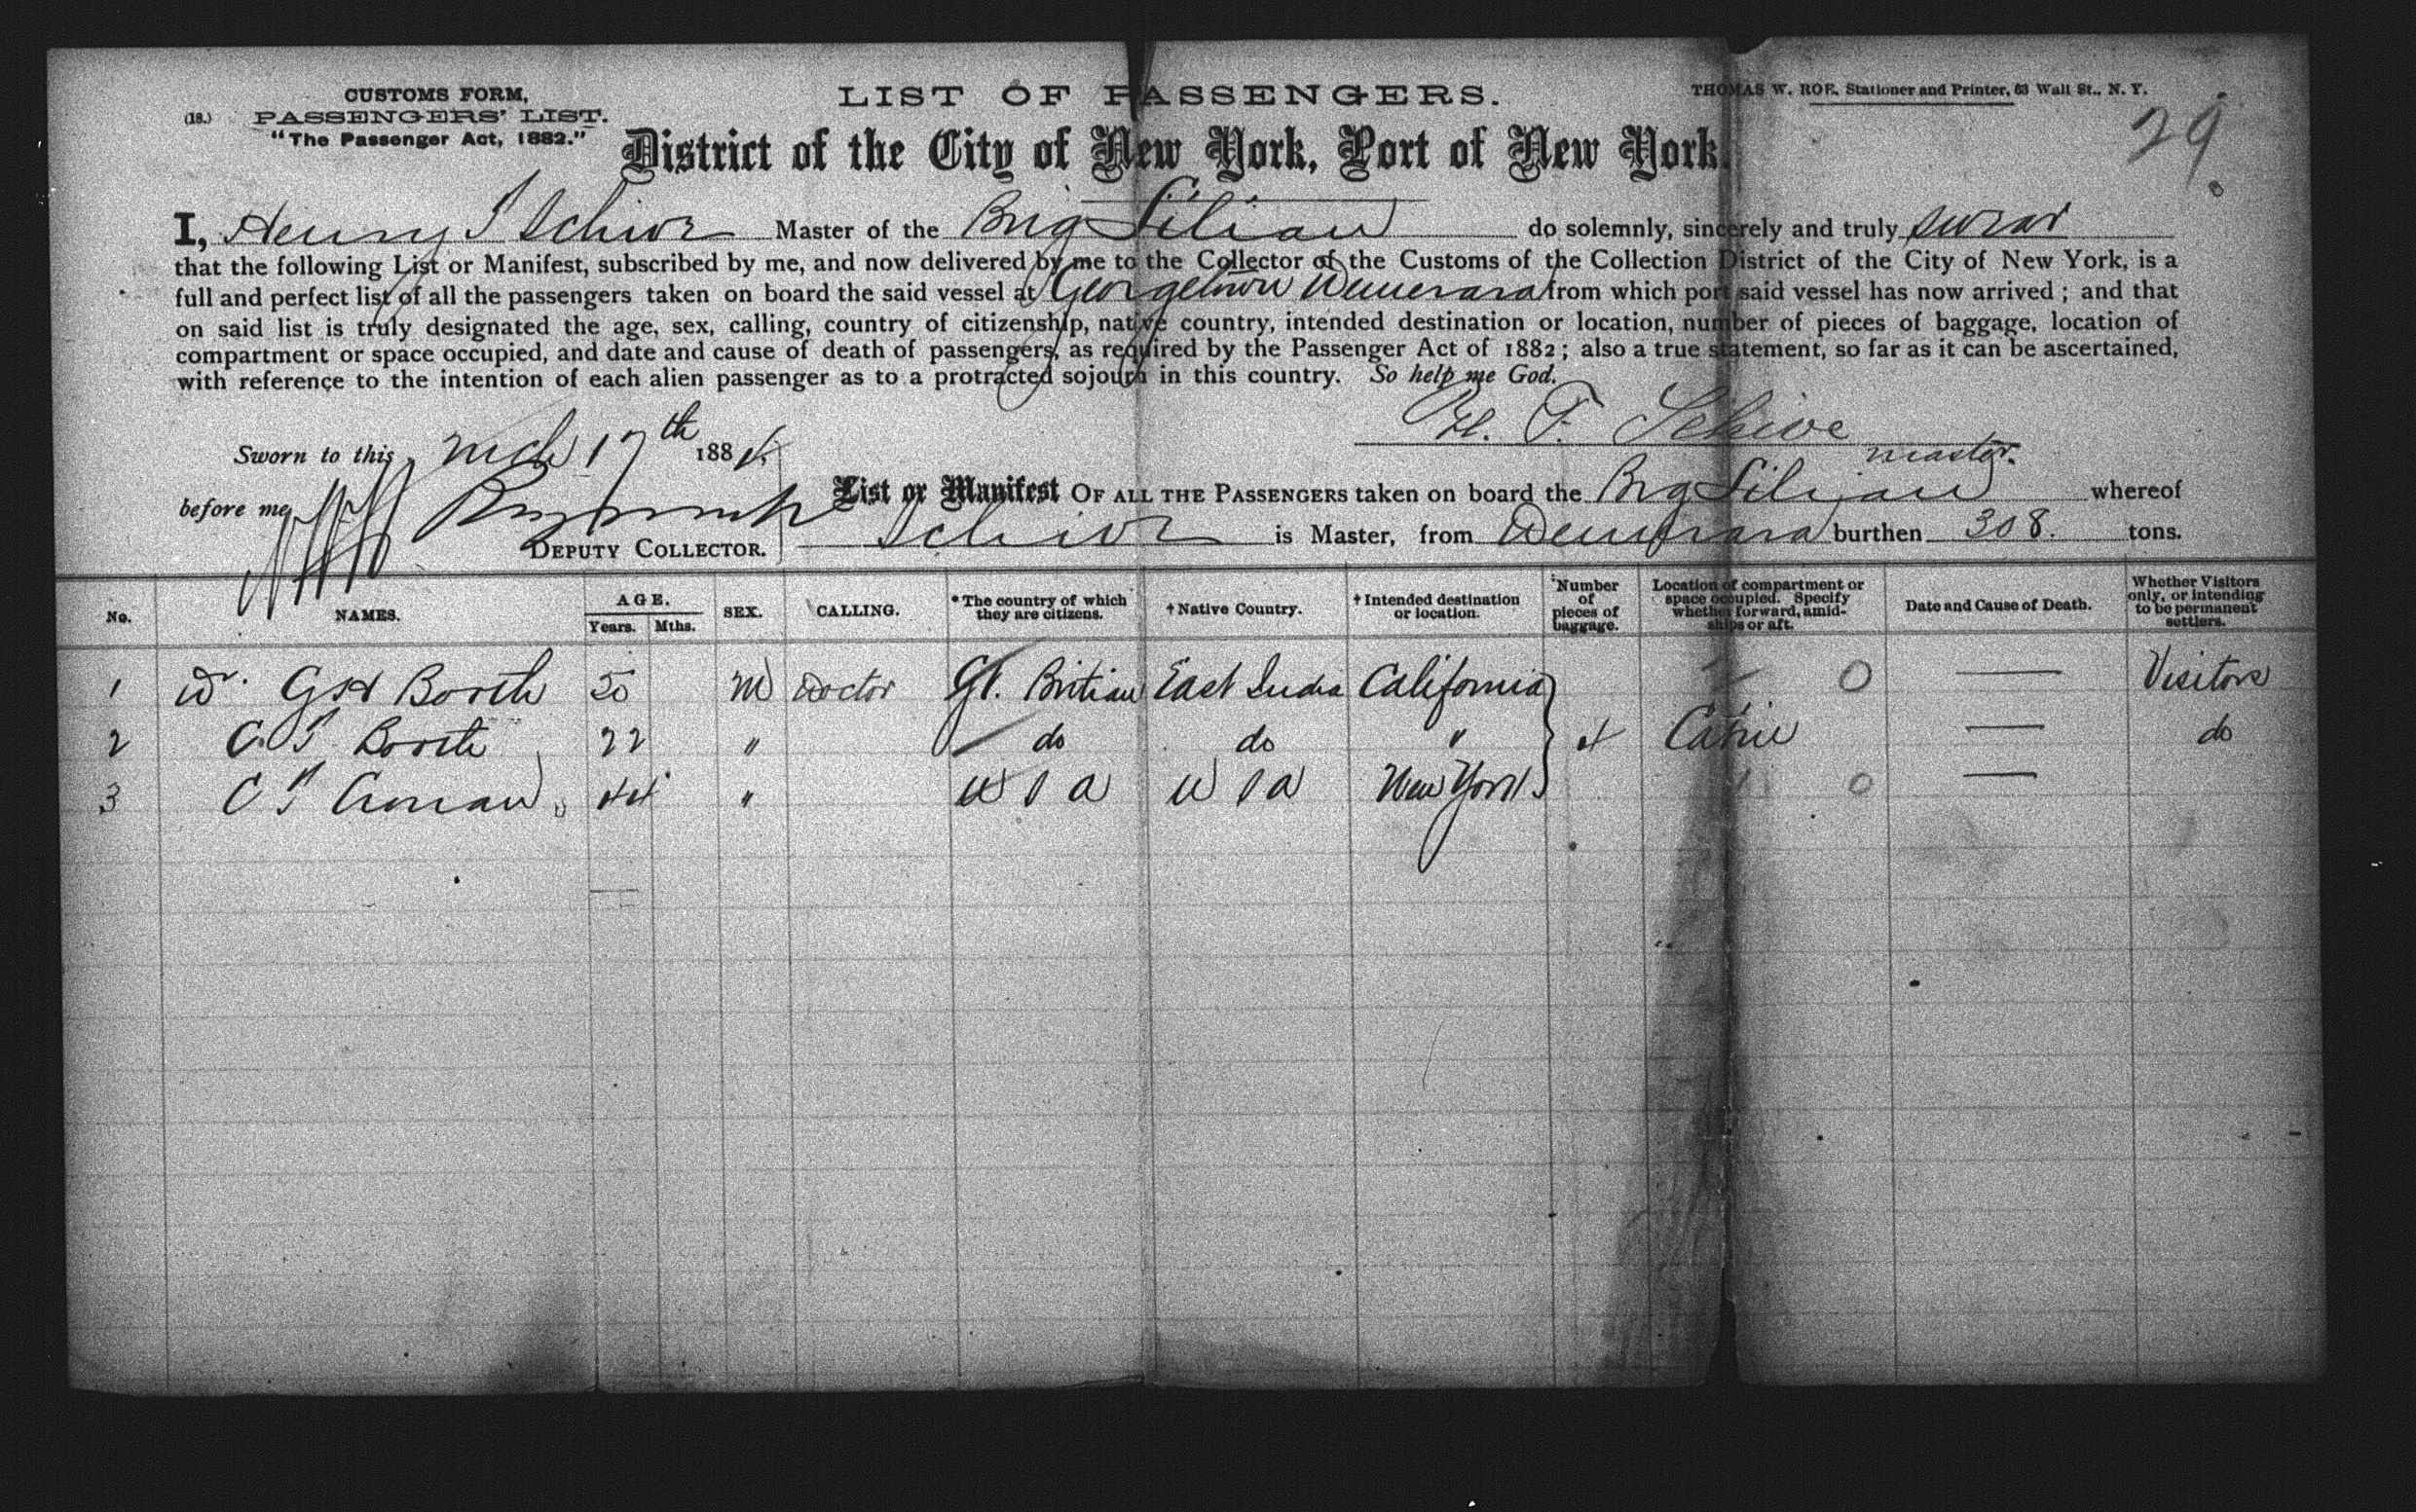 CUSTOMS FORM,
(18.) PASSENGERS' LIST.
"The Passenger Act, 1882."
LIST OF PASSENGERS.
THOMAS W. ROE, Stationer and Printer, 63 Wall St., N. Y.
29
District of the City of New York, Port of New York.
I, Henry F Schive Master of the Brig Lilian do solemnly, sincerely and truly swear
that the following List or Manifest, subscribed by me, and now delivered by me to the Collector of the Customs of the Collection District of the City of New York, is a
full and perfect list of all the passengers taken on board the said vessel at Georgetown Demerara from which port said vessel has now arrived; and that
on said list is truly designated the age, sex, calling, country of citizenship, native country, intended destination or location, number of pieces of baggage, location of
compartment or space occupied, and date and cause of death of passengers, as required by the Passenger Act of 1882; also a true statement, so far as it can be ascertained,
with reference to the intention of each alien passenger as to a protracted sojourn in this country. So help me God.
H. F. Schive
master.
Sworn to this Mch 17th 1884
before me
DEPUTY COLLECTOR.
List or Manifest OF ALL THE PASSENGERS taken on board the Brig Lilian whereof
Schive is Master, from Demerara burthen 308. tons.
No. NAMES. AGE. Years. Mths. SEX. CALLING. *The country of which they are citizens. †Native Country. †Intended destination or location. Number of pieces of baggage. Location of compartment or space occupied. Specify whether forward, amidships or aft. Date and Cause of Death. Whether Visitors only, or intending to be permanent settlers.
1 Dr. G H Booth 50 M Doctor Gt. Britian East India California 0 — Visitors
2 C. F Booth 22 " do do " 4 Cabin — do
3 C F 44 " U S A U S A New York 0 —